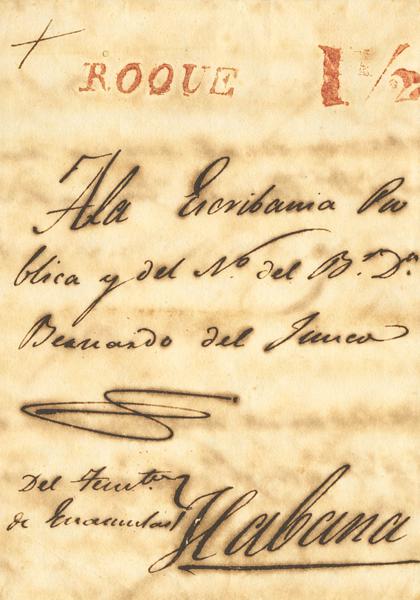 ROQUE 1½
A la Escribania Pu
blica y del N.º del B.r D.n
Bernardo del Junco
Del Tente.
de Guamutas
Habana